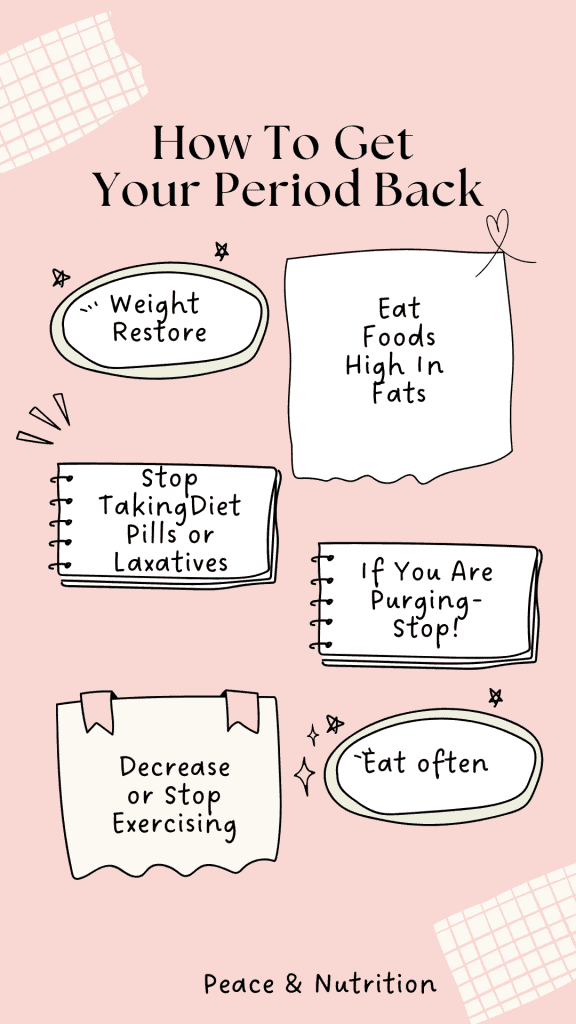 How To Get
Your Period Back
Weight
Restore
Eat
Foods
High In
Fats
Stop
TakingDiet
Pills or
Laxatives
If You Are
Purging-
Stop!
Decrease
or Stop
Exercising
Eat often
Peace & Nutrition